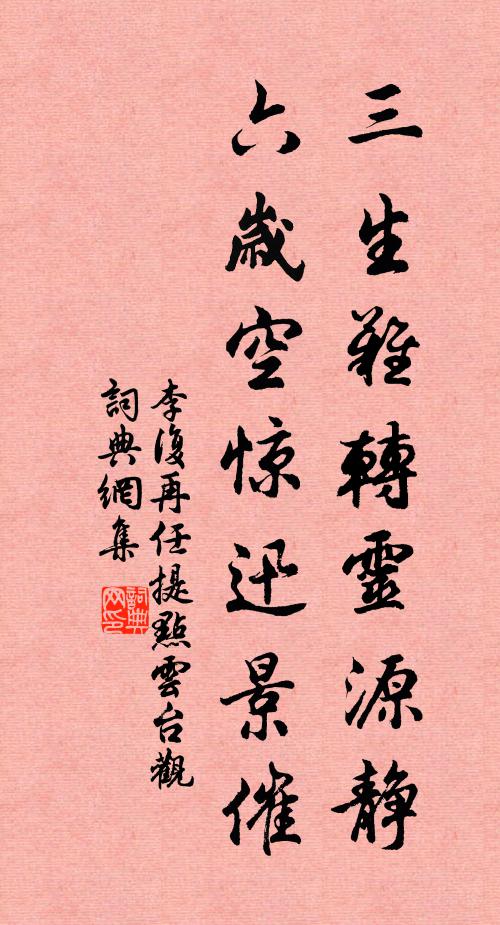 三生難轉靈源静
六歲空惊迅景催
李復再任提點雲台觀
詞典網集
詞典
网印